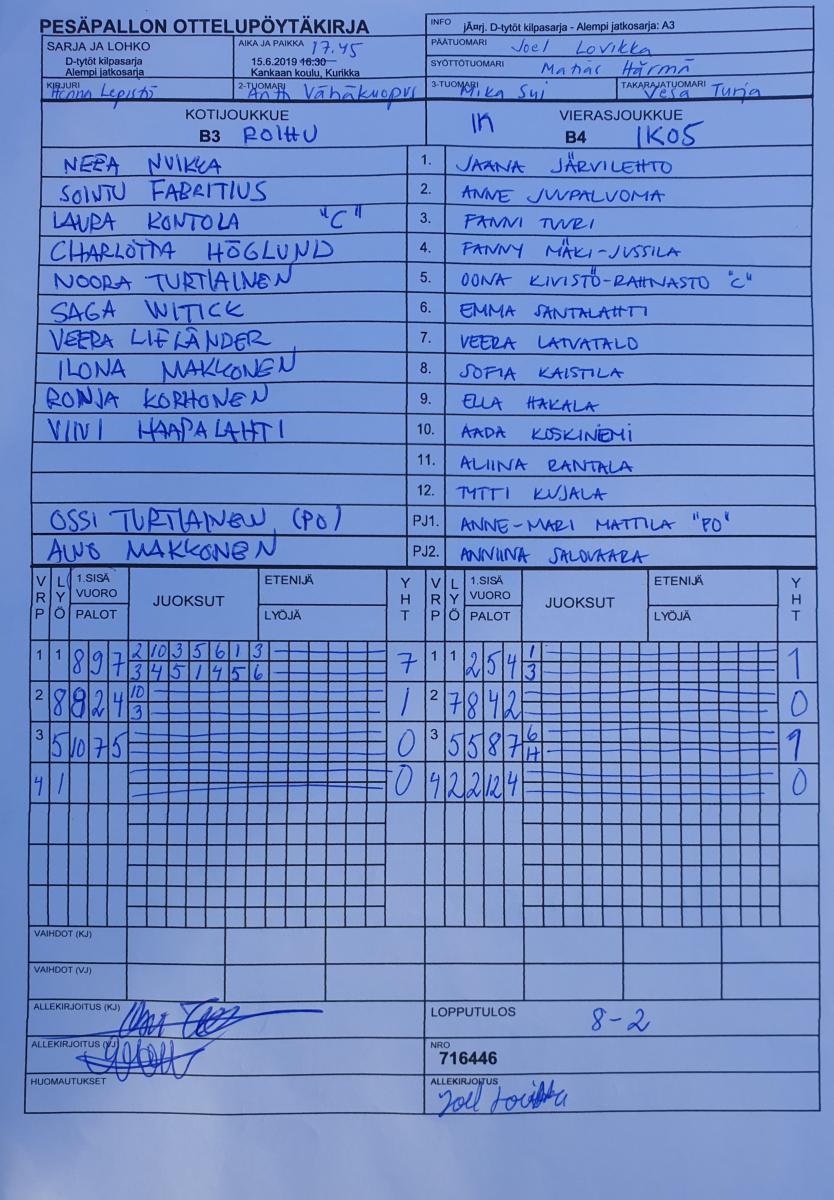 PESÄPALLON OTTELUPÖYTÄKIRJA
INFO jĀ¤rj. D-tytöt kilpasarja - Alempi jatkosarja: A3
SARJA JA LOHKO
D-tytöt kilpasarja
Alempi jatkosarja
AIKA JA PAIKKA 17.45
15.6.2019 16:30
Kankaan koulu, Kurikka
PÄÄTUOMARI Joel Lovikka
SYÖTTÖTUOMARI Matias Härmä
KIRJURI Henna Lepistö
2-TUOMARI Antti Vähäkuopus
3-TUOMARI Mika Sui
TAKARAJATUOMARI Vesa Turja
KOTIJOUKKUE
B3 ROIHU
VIERASJOUKKUE
B4 IK05
NEEA NUIKKA 1. JAANA JÄRVILEHTO
SOINTU FABRITIUS 2. ANNE JUUPALUOMA
LAURA KONTOLA "C" 3. FANNI TUURI
CHARLOTTA HÖGLUND 4. FANNY MÄKI-JUSSILA
NOORA TURTIAINEN 5. OONA KIVISTÖ-RAHNASTO "C"
SAGA WITICK 6. EMMA SANTALAHTI
VEERA LIFLÄNDER 7. VEERA LATVATALO
ILONA MAKKONEN 8. SOFIA KAISTILA
RONJA KORHONEN 9. ELLA HAKALA
VIIVI HAAPALAHTI 10. AADA KOSKINIEMI
11. ALIINA RANTALA
12. TYTTI KUJALA
OSSI TURTIAINEN (PO) PJ1. ANNE-MARI MATTILA "PO"
AINO MAKKONEN PJ2. ANNIINA SALOVAARA
VRP LYÖ 1.SISÄ VUORO PALOT JUOKSUT ETENIJÄ LYÖJÄ YHT VRP LYÖ 1.SISÄ VUORO PALOT JUOKSUT ETENIJÄ LYÖJÄ YHT
1 1 8 9 7 2 10 3 5 6 1 3 7 1 1 2 5 4 1 1
3 4 5 1 4 5 6 3
2 8 9 2 4 10 1 2 7 8 4 2 0
3
3 5 10 7 5 0 3 5 5 8 7 6 1
H
4 1 0 4 2 2 12 4 0
VAIHDOT (KJ)
VAIHDOT (VJ)
ALLEKIRJOITUS (KJ)
LOPPUTULOS 8-2
ALLEKIRJOITUS (VJ)
NRO
716446
HUOMAUTUKSET
ALLEKIRJOITUS
Joel Lovikka